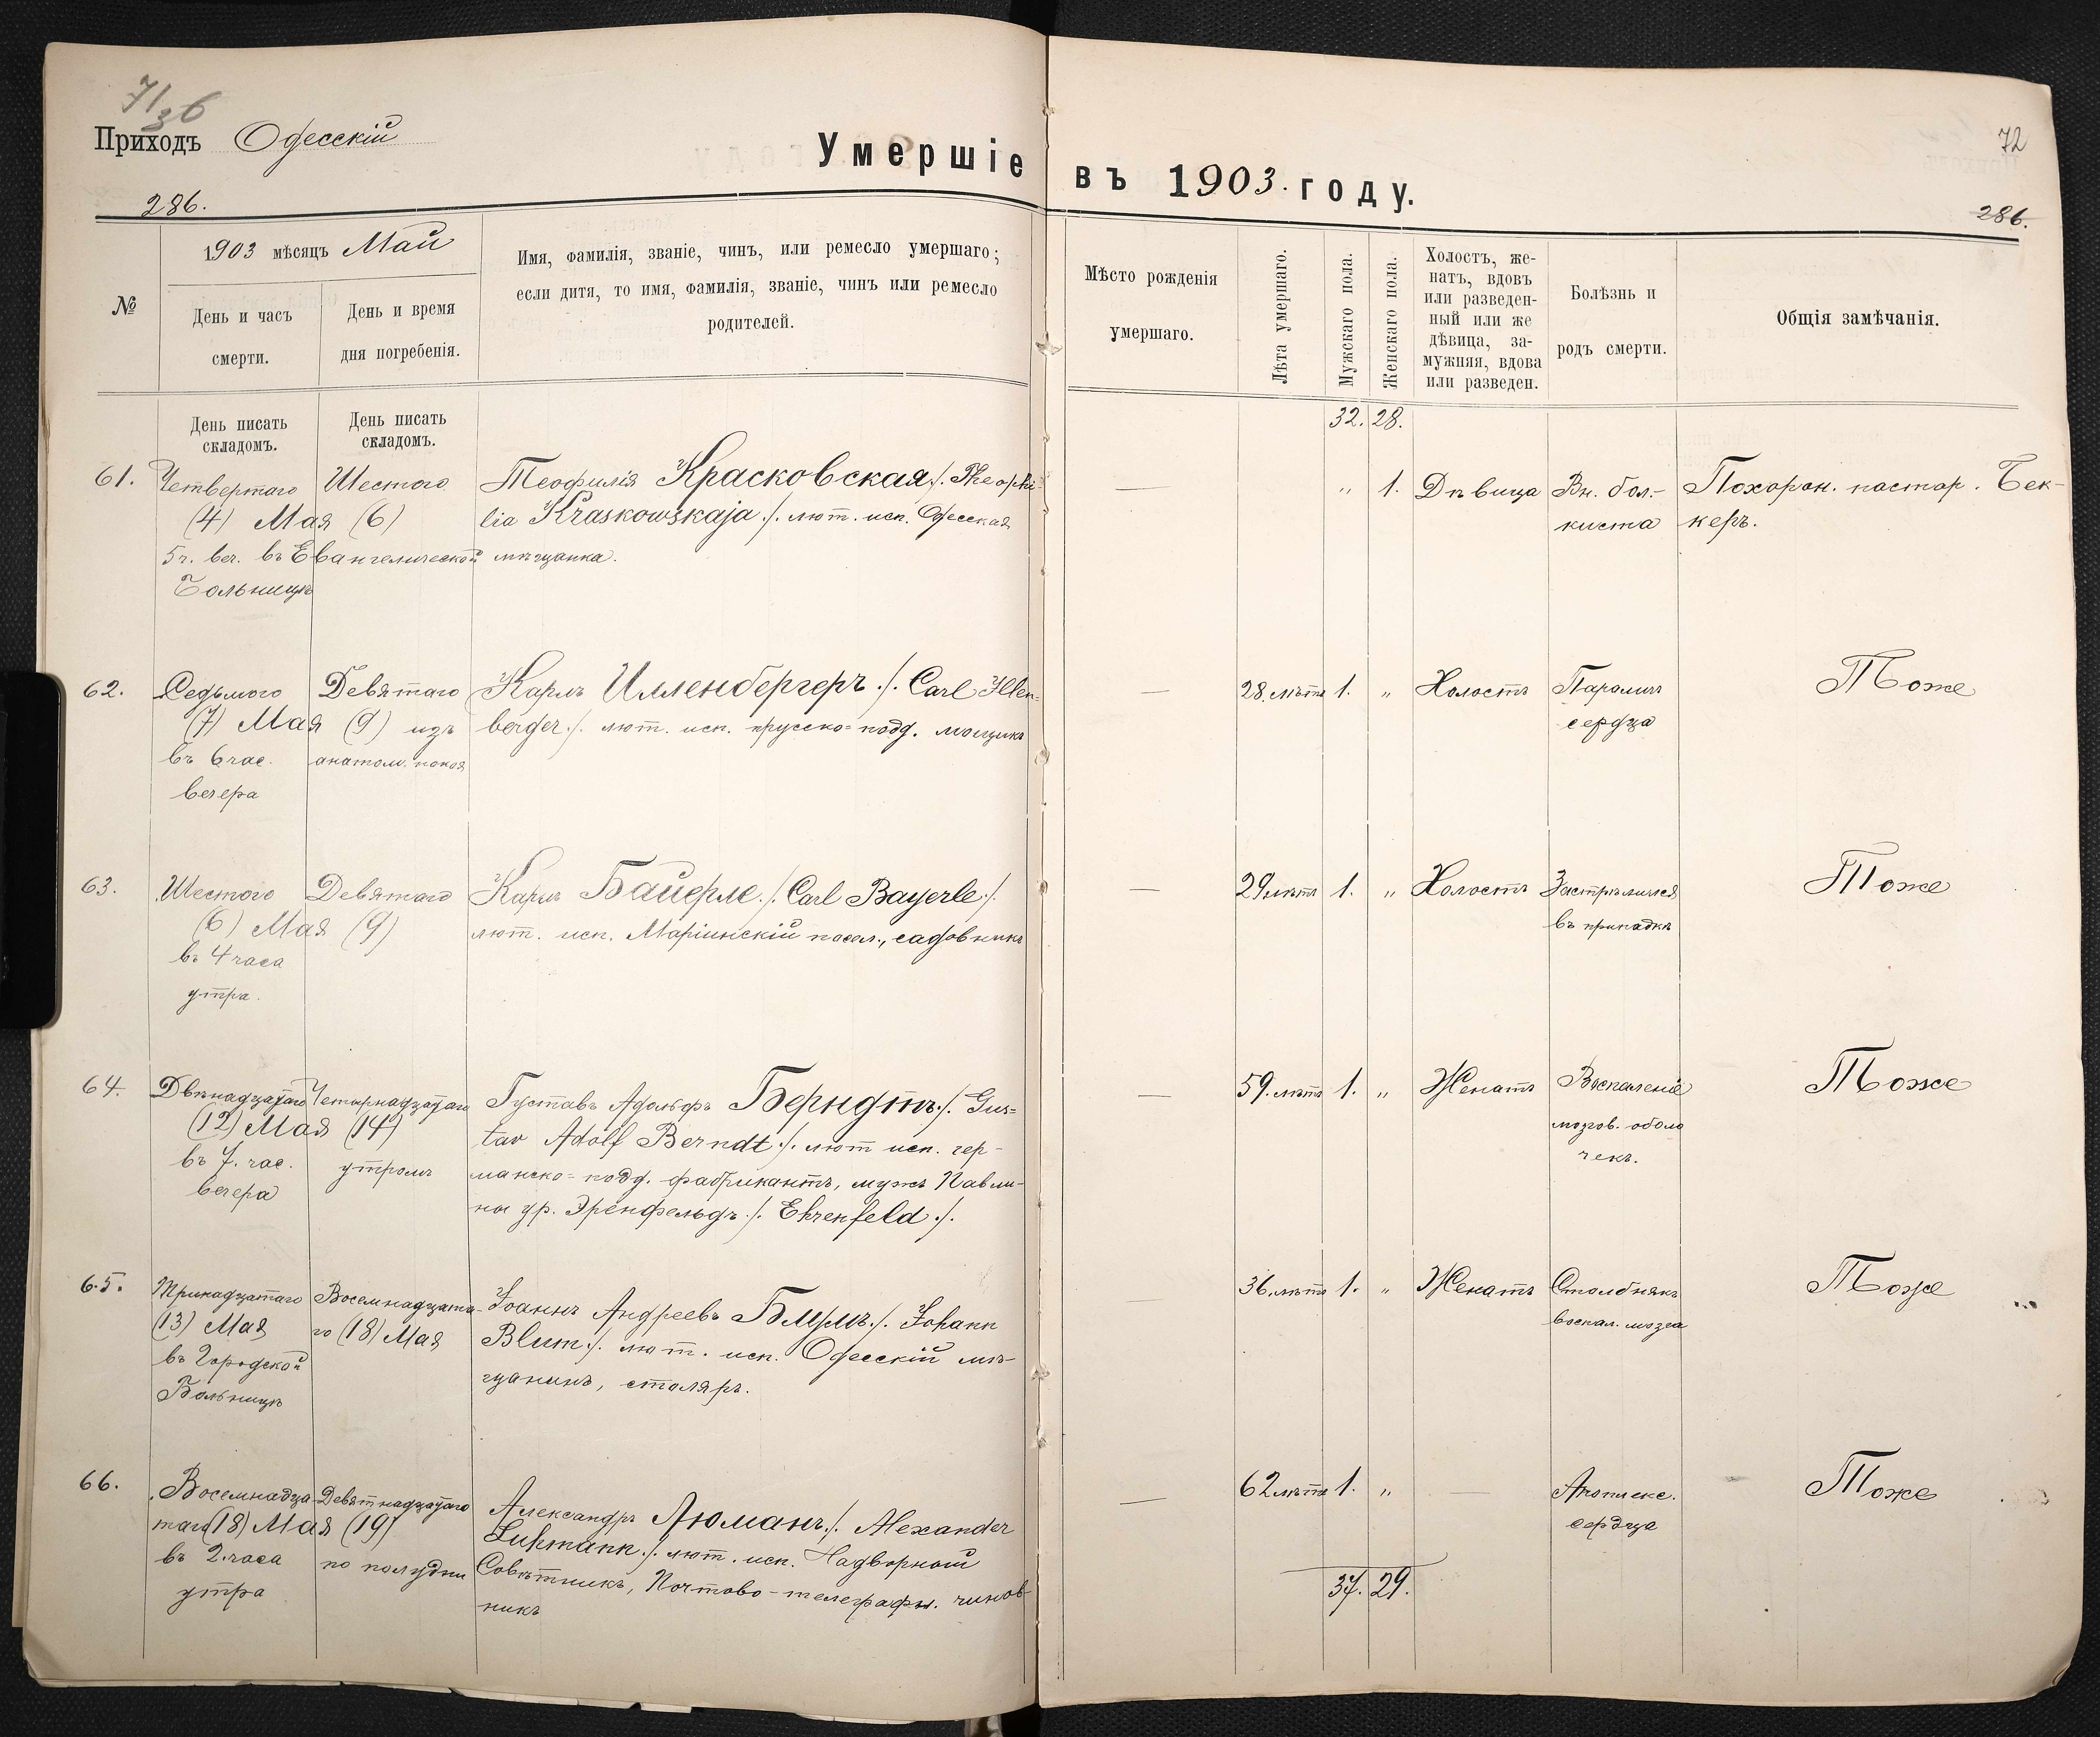 71
36
Приходъ Одесскій
Умершіе
286.
№
1903 мѣсяцъ Май
День и часъ
смерти.
День и время
дня погребенія.
Имя, фамилія, званіе, чинъ, или ремесло умершаго;
если дитя, то имя, фамилія, званіе, чинъ или ремесло
родителей.
День писать
складомъ.
День писать
складомъ.
61.
Четвертаго
(4) Мая
5 ч. веч. въ Евангелической
Больницѣ
Шестого
(6)
Теофилія Красковская ./. Theophi-
lia Kraskowskaja ./. лют. исп. Одесская
мѣщанка.
62.
Седьмого
(7) Мая
въ 6 час.
вечера
Девятаго
(9) изъ
анатом. покоя
Карлъ Илленбергеръ ./. Carl Illen-
berger ./. лют. исп. прусско-подд.
63.
Шестого
(6) Мая
въ 4 часа
утра.
Девятаго
(9)
Карлъ Байерле ./. Carl Bayerle ./.
лют. исп. Маріинскій посел., садовникъ
64.
Двѣнадцатаго
(12) Мая
въ 7. час.
вечера
Четырнадцатаго
(14)
утромъ
Густавъ Адольфъ Берндтъ ./. Gus-
tav Adolf Berndt ./. лют исп. гер-
манско-подд. фабрикантъ, мужъ Павли-
ны ур. Эренфельдъ ./. Ehrenfeld ./.
65.
Тринадцатаго
(13) Мая
въ Городской
Больницѣ
Восемнадцата-
го (18) Мая
Іоаннъ Андреевъ Блумъ ./. Johann
Blum ./. лют. исп. Одесскій мѣ-
щанинъ, столяръ.
66.
Восемнадца-
таго (18) Мая
въ 2. часа
утра
Девятнадцатаго
(19)
по полудни
Александръ Люманъ ./. Alexander
Luhmann ./. лют. исп. Надворный
Совѣтникъ, Почтово-телеграфн. чинов-
никъ
72
въ 1903. году.
286.
Мѣсто рожденія
умершаго.
Лѣта умершаго.
Мужскаго пола.
Женскаго пола.
Холостъ, же-
натъ, вдовъ
или разведен-
ный или же
дѣвица, за-
мужняя, вдова
или разведен.
Болѣзнь и
родъ смерти.
Общія замѣчанія.
32. 28.
— „ 1. Дѣвица
Вн. бол.-
киста
Похорон. пастор. Бек-
керъ.
— 28. лѣтъ 1. „ Холостъ
Параличъ
сердца
Тоже
— 29 лѣтъ 1. „ Холостъ
Застрѣлился
въ припадкѣ
Тоже
— 59. лѣтъ 1. „ Женатъ
Воспаленіе
мозгов. оболо
чекъ.
Тоже
— 36. лѣтъ 1. „ Женатъ
Столбнякъ
воспал. мозга
Тоже
— 62 лѣтъ 1. „ —
сердца
Тоже
37. 29.